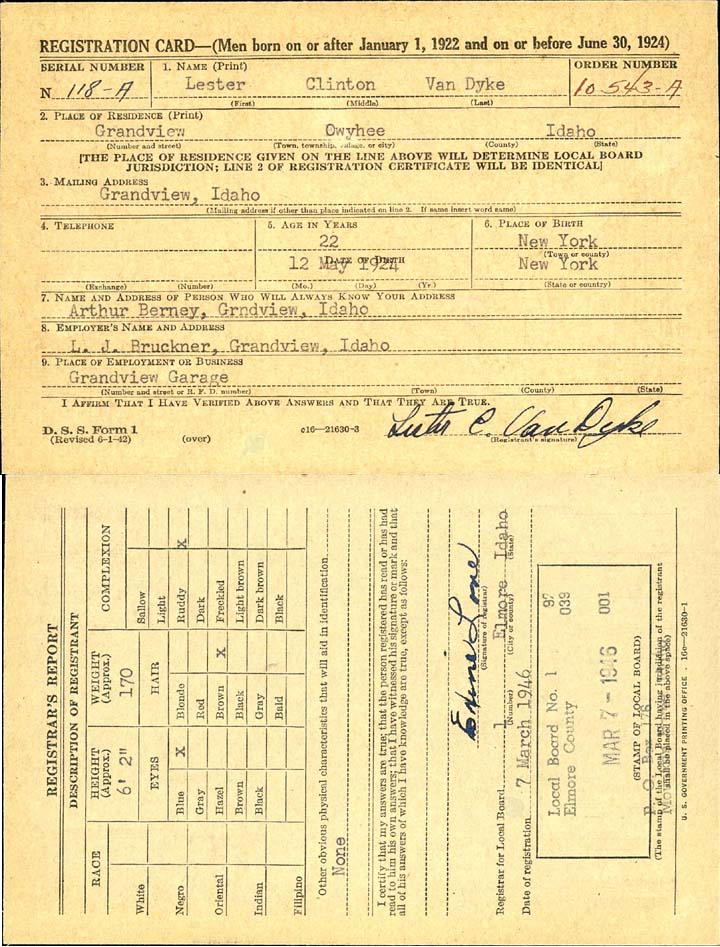 REGISTRATION CARD—(Men born on or after January 1, 1922 and on or before June 30, 1924)
SERIAL NUMBER 1. NAME (Print) ORDER NUMBER
N 118-A Lester Clinton Van Dyke 10 543-A
(First) (Middle) (Last)
2. PLACE OF RESIDENCE (Print)
Grandview Owyhee Idaho
(Number and street) (Town, township, village, or city) (County) (State)
[THE PLACE OF RESIDENCE GIVEN ON THE LINE ABOVE WILL DETERMINE LOCAL BOARD
JURISDICTION; LINE 2 OF REGISTRATION CERTIFICATE WILL BE IDENTICAL]
3. MAILING ADDRESS
Grandview, Idaho
(Mailing address if other than place indicated on line 2. If same insert word same)
4. TELEPHONE 5. AGE IN YEARS 6. PLACE OF BIRTH
22 New York
DATE OF BIRTH (Town or county)
12 May 1924 New York
(Exchange) (Number) (Mo.) (Day) (Yr.) (State or country)
7. NAME AND ADDRESS OF PERSON WHO WILL ALWAYS KNOW YOUR ADDRESS
Arthur Berney, Grndview, Idaho
8. EMPLOYER'S NAME AND ADDRESS
L. J. Bruckner, Grandview, Idaho
9. PLACE OF EMPLOYMENT OR BUSINESS
Grandview Garage
(Number and street or R. F. D. number) (Town) (County) (State)
I AFFIRM THAT I HAVE VERIFIED ABOVE ANSWERS AND THAT THEY ARE TRUE.
D. S. S. Form 1
(Revised 6-1-42) (over) c16—21630-3 Lester C. Van Dyke
(Registrant's signature)
REGISTRAR'S REPORT
DESCRIPTION OF REGISTRANT
RACE HEIGHT (Approx.) WEIGHT (Approx.) COMPLEXION
6' 2" 170
EYES HAIR
White Sallow
Light
Negro Blue X Blonde Ruddy X
Gray Red Dark
Oriental Hazel Brown X Freckled
Brown Black Light brown
Indian Black Gray Dark brown
Bald Black
Filipino
Other obvious physical characteristics that will aid in identification
None
I certify that my answers are true; that the person registered has read or has had
read to him his own answers; that I have witnessed his signature or mark and that
all of his answers of which I have knowledge are true, except as follows:
(Signature of registrar)
Registrar for Local Board 1 Elmore Idaho
(Number) (City or county) (State)
Date of registration 7 March 1946
Local Board No. 1 97
Elmore County 039
MAR 7 - 1946 001
(STAMP OF LOCAL BOARD)
(The stamp of the Local Board having jurisdiction of the registrant
shall be placed in the above space)
U. S. GOVERNMENT PRINTING OFFICE . 16c—21630-1